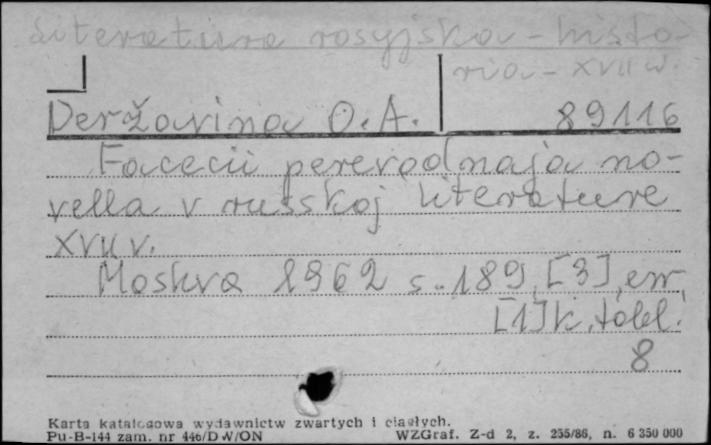 Literatura rosyjska - histo-
ria - XVII w.
Deržavina O. A.
89116
Facecii perevodnaja no-
vella v russkoj literature
XVII v.
Moskva 1962 s. 189, [3], err.
[1] k. tabl.
8
Karta katalogowa wydawnictw zwartych i ciągłych.
Pu-B-144 zam. nr 446/DW/ON
WZGraf. Z-d 2, z. 255/86, n. 6 350 000